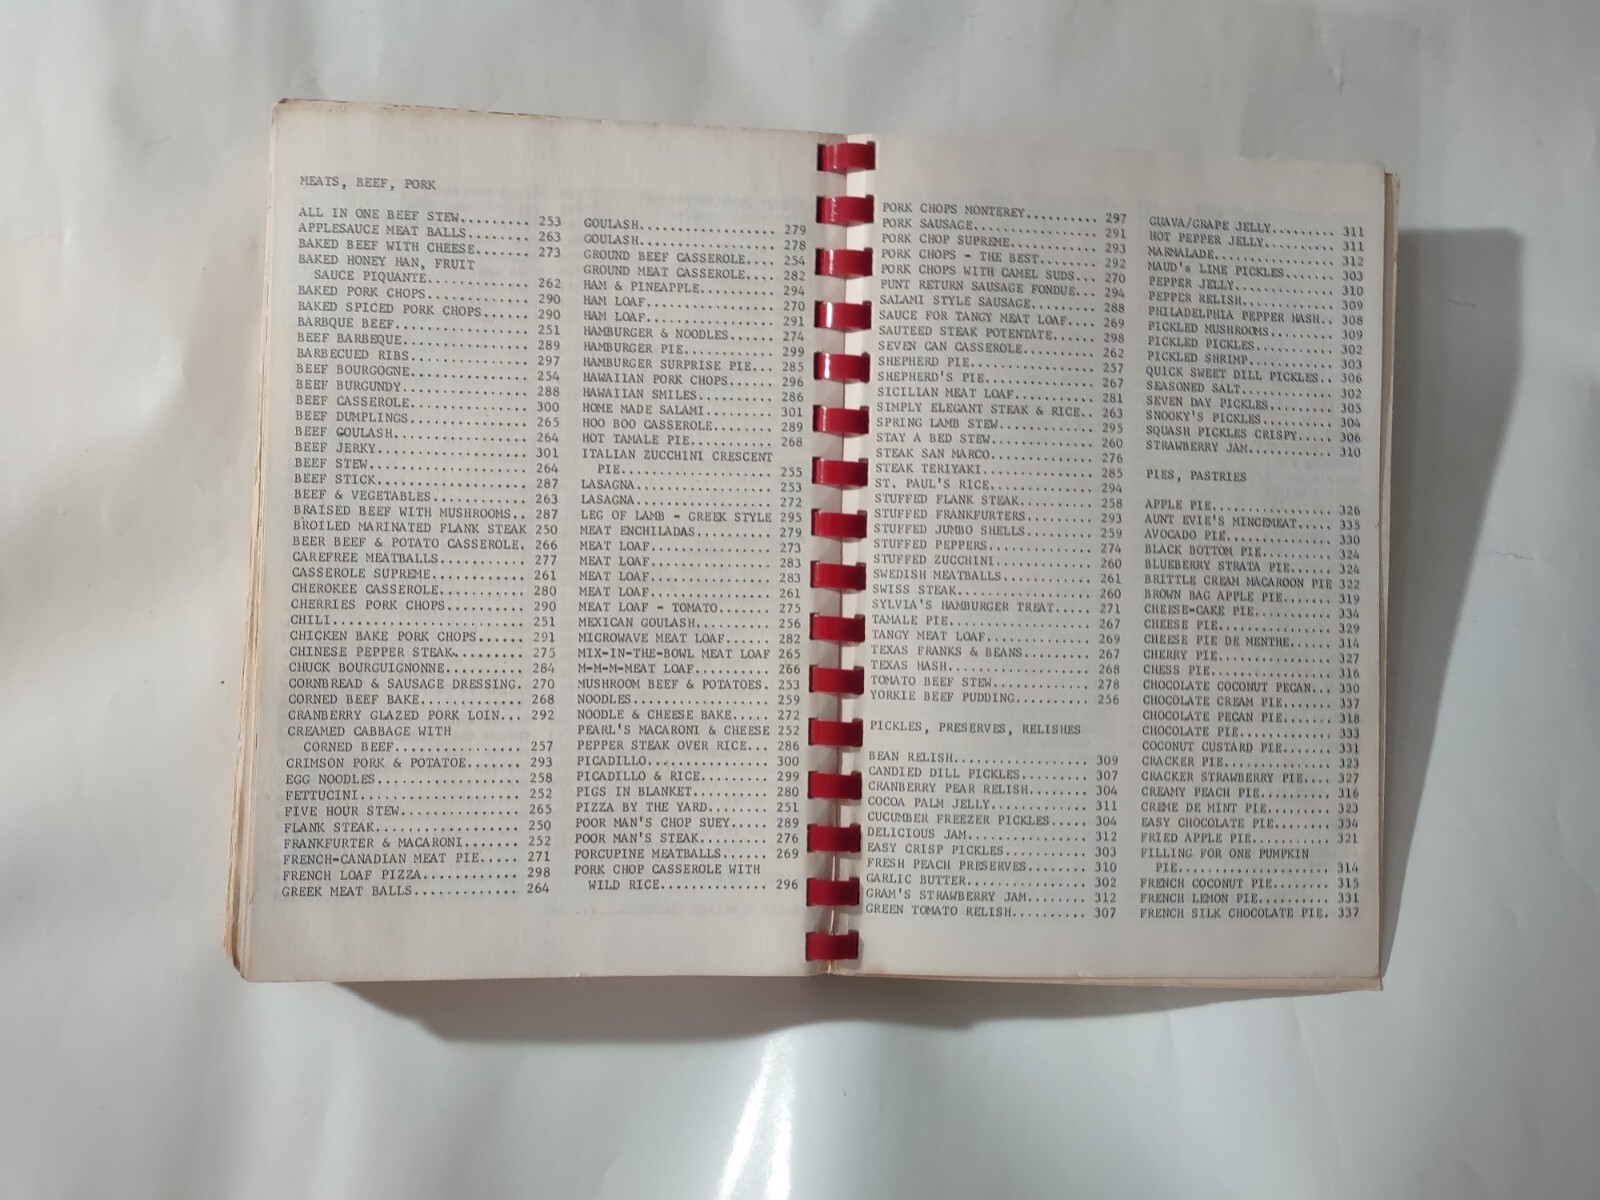 MEATS, BEEF, PORK
ALL IN ONE BEEF STEW......... 253
APPLESAUCE MEAT BALLS........ 263
BAKED BEEF WITH CHEESE....... 273
BAKED HONEY HAN, FRUIT
SAUCE PIQUANTE.............. 262
BAKED PORK CHOPS............. 290
BAKED SPICED PORK CHOPS...... 290
BARBQUE BEEF................. 251
BEEF BARBEQUE................ 289
BARBECUED RIBS............... 297
BEEF BOURGOGNE............... 254
BEEF BURGUNDY................ 288
BEEF CASSEROLE............... 300
BEEF DUMPLINGS............... 265
BEEF GOULASH................. 264
BEEF JERKY................... 301
BEEF STEW.................... 264
BEEF STICK................... 287
BEEF & VEGETABLES............ 263
BRAISED BEEF WITH MUSHROOMS.. 287
BROILED MARINATED FLANK STEAK 250
BEER BEEF & POTATO CASSEROLE. 266
CAREFREE MEATBALLS........... 277
CASSEROLE SUPREME............ 261
CHEROKEE CASSEROLE........... 280
CHERRIES PORK CHOPS.......... 290
CHILI........................ 251
CHICKEN BAKE PORK CHOPS...... 291
CHINESE PEPPER STEAK......... 275
CHUCK BOURGUIGNONNE.......... 284
CORNBREAD & SAUSAGE DRESSING. 270
CORNED BEEF BAKE............. 268
CRANBERRY GLAZED PORK LOIN... 292
CREAMED CABBAGE WITH
CORNED BEEF................ 257
CRIMSON PORK & POTATOE....... 293
EGG NOODLES.................. 258
FETTUCINI.................... 252
FIVE HOUR STEW............... 265
FLANK STEAK.................. 250
FRANKFURTER & MACARONI....... 252
FRENCH-CANADIAN MEAT PIE..... 271
FRENCH LOAF PIZZA............ 298
GREEK MEAT BALLS............. 264
GOULASH...................... 279
GOULASH...................... 278
GROUND BEEF CASSEROLE........ 254
GROUND MEAT CASSEROLE........ 282
HAM & PINEAPPLE.............. 294
HAM LOAF..................... 270
HAM LOAF..................... 291
HAMBURGER & NOODLES.......... 274
HAMBURGER PIE................ 299
HAMBURGER SURPRISE PIE... 285
HAWAIIAN PORK CHOPS...... 296
HAWAIIAN SMILES.......... 286
HOME MADE SALAMI......... 301
HOO BOO CASSEROLE........ 289
HOT TAMALE PIE........... 268
ITALIAN ZUCCHINI CRESCENT
PIE.................... 255
LASAGNA.................. 253
LASAGNA.................. 272
LEG OF LAMB - GREEK STYLE 295
MEAT ENCHILADAS.......... 279
MEAT LOAF................ 273
MEAT LOAF................ 283
MEAT LOAF................ 283
MEAT LOAF................ 261
MEAT LOAF - TOMATO....... 275
MEXICAN GOULASH.......... 256
MICROWAVE MEAT LOAF...... 282
MIX-IN-THE-BOWL MEAT LOAF 265
M-M-M-MEAT LOAF.......... 266
MUSHROOM BEEF & POTATOES. 253
NOODLES.................. 259
NOODLE & CHEESE BAKE..... 272
PEARL'S MACARONI & CHEESE 252
PEPPER STEAK OVER RICE... 286
PICADILLO................ 300
PICADILLO & RICE......... 299
PIGS IN BLANKET.......... 280
PIZZA BY THE YARD........ 251
POOR MAN'S CHOP SUEY..... 289
POOR MAN'S STEAK......... 276
PORCUPINE MEATBALLS...... 269
PORK CHOP CASSEROLE WITH
WILD RICE.............. 296
PORK CHOPS MONTEREY.......... 297
PORK SAUSAGE................. 291
PORK CHOP SUPREME............ 293
PORK CHOPS - THE BEST........ 292
PORK CHOPS WITH CAMEL SUDS... 270
PUNT RETURN SAUSAGE FONDUE... 294
SALAMI STYLE SAUSAGE......... 288
SAUCE FOR TANGY MEAT LOAF.... 269
SAUTEED STEAK POTENTATE...... 298
SEVEN CAN CASSEROLE.......... 262
SHEPHERD PIE................. 257
SHEPHERD'S PIE............... 267
SICILIAN MEAT LOAF........... 281
SIMPLY ELEGANT STEAK & RICE.. 263
SPRING LAMB STEW............. 295
STAY A BED STEW.............. 260
STEAK SAN MARCO.............. 276
STEAK TERIYAKI............... 285
ST. PAUL'S RICE.............. 294
STUFFED FLANK STEAK.......... 258
STUFFED FRANKFURTERS......... 293
STUFFED JUMBO SHELLS......... 259
STUFFED PEPPERS.............. 274
STUFFED ZUCCHINI............. 260
SWEDISH MEATBALLS............ 261
SWISS STEAK.................. 260
SYLVIA'S HAMBURGER TREAT..... 271
TAMALE PIE................... 267
TANGY MEAT LOAF.............. 269
TEXAS FRANKS & BEANS......... 267
TEXAS HASH................... 268
TOMATO BEEF STEW............. 278
YORKIE BEEF PUDDING.......... 256
PICKLES, PRESERVES, RELISHES
BEAN RELISH.................. 309
CANDIED DILL PICKLES......... 307
CRANBERRY PEAR RELISH........ 304
COCOA PALM JELLY............. 311
CUCUMBER FREEZER PICKLES..... 304
DELICIOUS JAM................ 312
EASY CRISP PICKLES........... 303
FRESH PEACH PRESERVES........ 310
GARLIC BUTTER................ 302
GRAM'S STRAWBERRY JAM........ 312
GREEN TOMATO RELISH.......... 307
GUAVA/GRAPE JELLY......... 311
HOT PEPPER JELLY.......... 311
MARMALADE................. 312
MAUD's LIME PICKLES....... 303
PEPPER JELLY.............. 310
PEPPER RELISH............. 309
PHILADELPHIA PEPPER HASH.. 308
PICKLED MUSHROOMS......... 309
PICKLED PICKLES........... 302
PICKLED SHRIMP............ 303
QUICK SWEET DILL PICKLES.. 306
SEASONED SALT............. 302
SEVEN DAY PICKLES......... 305
SNOOKY'S PICKLES.......... 304
SQUASH PICKLES CRISPY..... 306
STRAWBERRY JAM............ 310
PIES, PASTRIES
APPLE PIE................. 326
AUNT EVIE'S MINCEMEAT..... 335
AVOCADO PIE............... 330
BLACK BOTTOM PIE.......... 324
BLUEBERRY STRATA PIE...... 324
BRITTLE CREAM MACAROON PIE 322
BROWN BAG APPLE PIE....... 319
CHEESE-CAKE PIE........... 334
CHEESE PIE................ 329
CHEESE PIE DE MENTHE...... 314
CHERRY PIE................ 327
CHESS PIE................. 316
CHOCOLATE COCONUT PECAN... 330
CHOCOLATE CREAM PIE....... 337
CHOCOLATE PECAN PIE....... 318
CHOCOLATE PIE............. 333
COCONUT CUSTARD PIE....... 331
CRACKER PIE............... 323
CRACKER STRAWBERRY PIE.... 327
CREAMY PEACH PIE.......... 316
CREME DE MINT PIE......... 323
EASY CHOCOLATE PIE........ 334
FRIED APPLE PIE........... 321
FILLING FOR ONE PUMPKIN
PIE..................... 314
FRENCH COCONUT PIE........ 315
FRENCH LEMON PIE.......... 331
FRENCH SILK CHOCOLATE PIE. 337